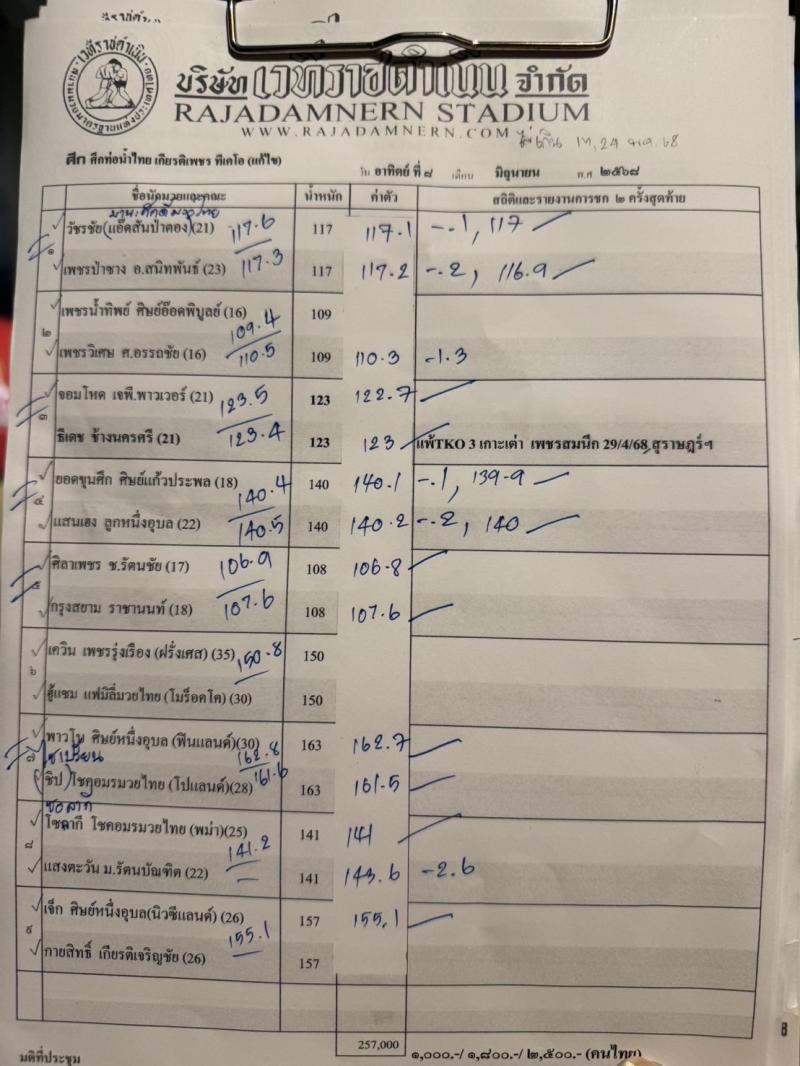 บริษัท เวทีราชดำเนิน จำกัด
RAJADAMNERN STADIUM
WWW.RAJADAMNERN.COM
ศึก ศึกท่อน้ำไทย เกียรติเพชร ทีเคโอ (แก้ไข)
วัน อาทิตย์ ที่ ๘ เดือน มิถุนายน พ.ศ ๒๕๖๘
ชื่อนักมวยและคณะ น้ำหนัก ค่าตัว สถิติและรายงานการชก ๒ ครั้งสุดท้าย
วัชรชัย(แอ๊ดสันป่าตอง)(21) 117.6 117 117.1 -.1, 117
๑
เพชรป่าซาง อ.สนิทพันธ์ (23) 117.3 117 117.2 -.2, 116.9
เพชรน้ำทิพย์ ศิษย์อ๊อดพิบูลย์ (16) 109.4 109
๒
เพชรวิเศษ ศ.อรรถชัย (16) 110.5 109 110.3 -1.3
จอมโหด เจพี.พาวเวอร์ (21) 123.5 123 122.7
๓
ธีเดช ช้างนครศรี (21) 123.4 123 123 แพ้TKO 3 เกาะเต่า เพชรสมนึก 29/4/68 สุราษฎร์ฯ
ยอดขุนศึก ศิษย์แก้วประพล (18) 140.4 140 140.1 -.1, 139.9
๔
แสนเฮง ลูกหนึ่งอุบล (22) 140.5 140 140.2 -.2, 140
ศิลาเพชร ช.รัตนชัย (17) 106.9 108 106.8
๕
กรุงสยาม ราชานนท์ (18) 107.6 108 107.6
เควิน เพชรรุ่งเรือง (ฝรั่งเศส) (35) 150.8 150
๖
ฮู้แซม แฟมิลี่มวยไทย (โมร็อคโค) (30) 150
พาวโน ศิษย์หนึ่งอุบล (ฟินแลนด์)(30) 162.8 163 162.7
๗
ไซเปรียน
(ชิป) โชคอมรมวยไทย (โปแลนด์)(28) 161.6 163 161.5
โซลากี โชคอมรมวยไทย (พม่า)(25) 141 141
๘ 141.2
แสงตะวัน ม.รัตนบัณฑิต (22) 141 143.6 -2.6
เจ็ก ศิษย์หนึ่งอุบล(นิวซีแลนด์) (26) 157 155.1
๙ 155.1
กายสิทธิ์ เกียรติเจริญชัย (26) 157
257,000 ๑,๐๐๐.-/ ๑,๘๐๐.-/ ๒,๕๐๐.- (คนไทย)
มติที่ประชุม
8